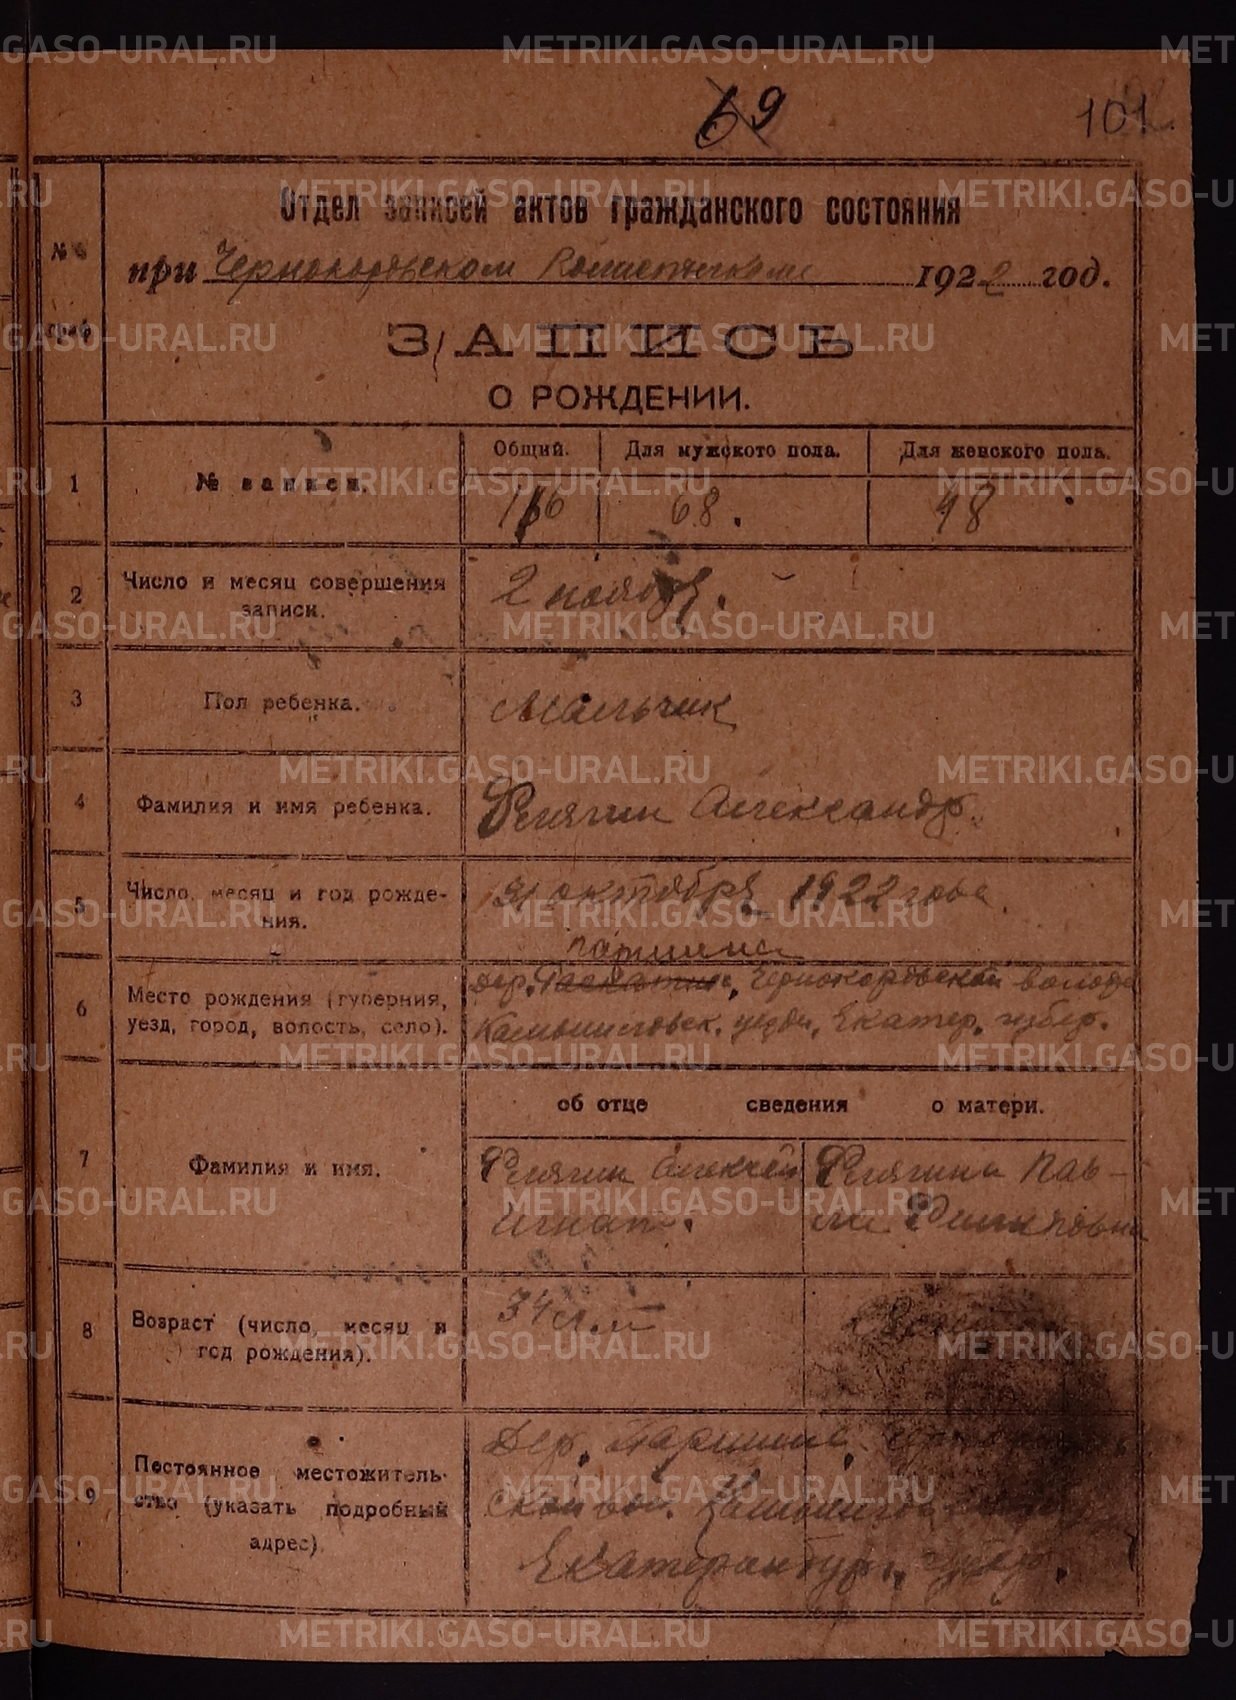 69
101
Отдел записей актов гражданского состояния
при Чернокоровском 1922 год.
№№
граф
ЗАПИСЬ
О РОЖДЕНИИ.
1 № записи. Общий. Для мужского пола. Для женского пола.
116 68. 48
2 Число и месяц совершения записи. 2 ноября.
3 Пол ребенка. Мальчик
4 Фамилия и имя ребенка. Флягин Александр.
5 Число, месяц и год рождения. октября 1922 года.
Паршина
6 Место рождения (губерния, дер. Чернокоровской волости
уезд, город, волость, село). Камышловск. уезда, Екатер. губер.
об отце сведения о матери.
7 Фамилия и имя. Флягин Алексей Флягина Пав-
Игнат. ла Филиповна
8 Возраст (число, месяц и 34 лет
год рождения).
9 Постоянное местожитель- Дер. Паршина,
ство (указать подробный ской вол. Камышловского
адрес). Екатеринбург. губер.
METRIKI.GASO-URAL.RU